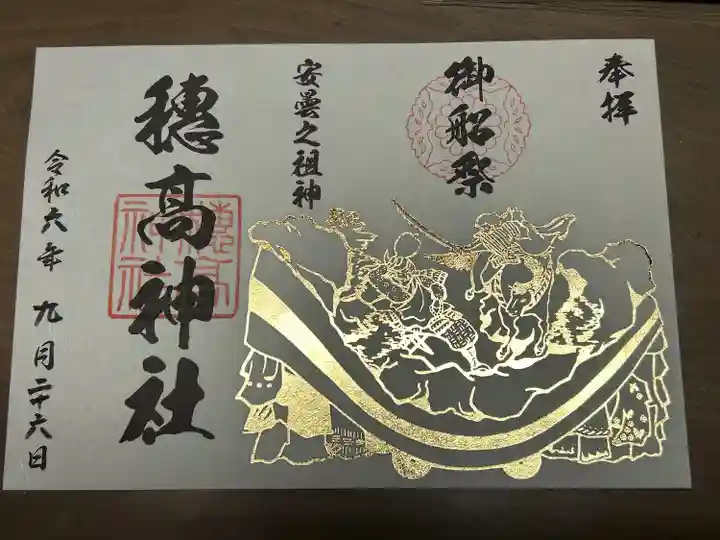 奉拝
御船祭
安曇之祖神
穗髙神社
穂高神社
令和六年 九月二十六日